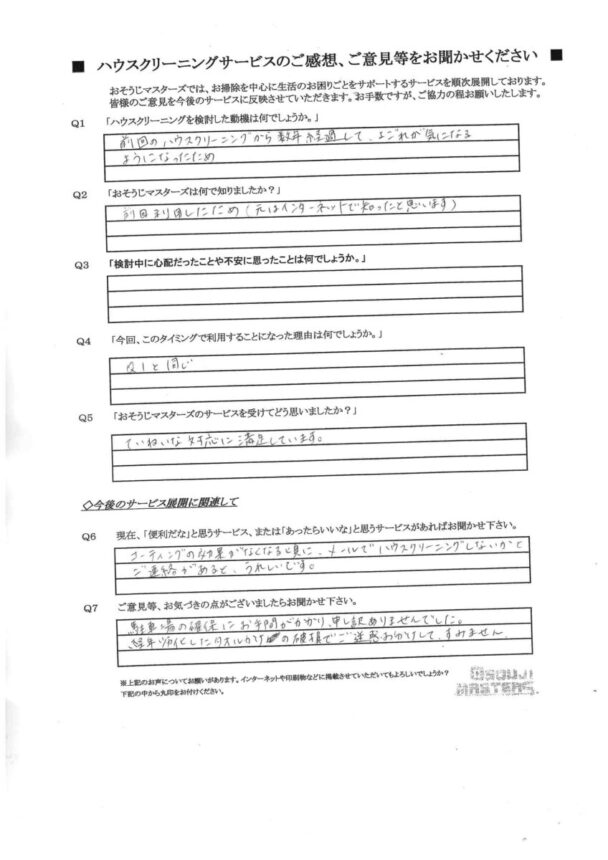 ■ ハウスクリーニングサービスのご感想、ご意見等をお聞かせください ■
おそうじマスターズでは、お掃除を中心に生活のお困りごとをサポートするサービスを順次展開しております。
皆様のご意見を今後のサービスに反映させていただきます。お手数ですが、ご協力の程お願いいたします。
Q1 「ハウスクリーニングを検討した動機は何でしょうか。」
前回のハウスクリーニングから数年経過して、よごれが気になる
ようになったため
Q2 「おそうじマスターズは何で知りましたか？」
前回利用したため(元はインターネットで知ったと思います)
Q3 「検討中に心配だったことや不安に思ったことは何でしょうか。」
Q4 「今回、このタイミングで利用することになった理由は何でしょうか。」
Q1と同じ
Q5 「おそうじマスターズのサービスを受けてどう思いましたか？」
ていねいな対応に満足しています。
◇今後のサービス展開に関連して
Q6 現在、「便利だな」と思うサービス、または「あったらいいな」と思うサービスがあればお聞かせ下さい。
コーティングの効果がなくなる頃に、メールでハウスクリーニングしないかと
ご連絡があると、うれしいです。
Q7 ご意見等、お気づきの点がございましたらお聞かせ下さい。
駐車場の確保にお手間がかかり、申し訳ありませんでした。
経年劣化したタオルかけの破損でご迷惑おかけして、すみません。
※上記のお声についてお願いがあります。インターネットや印刷物などに掲載させていただいてもよろしいでしょうか？
下記の中から丸印をお付けください。
OSOUJI
MASTERS.